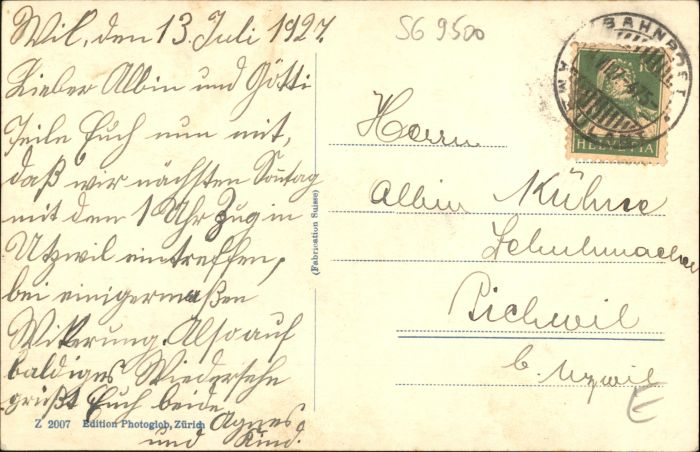 Wil, den 13. Juli 1927.
Lieber Albin und Götti
Teile Euch nun mit,
daß wir nächsten Sonntag
mit dem 1 Uhr Zug in
Utzwil eintreffen,
bei einigermaßen
Witterung. Also auf
baldiges Wiedersehn
grüßt Euch beide
Agnes
und Kind.
Z 2007 Edition Photoglob, Zürich
(Fabrication Suisse)
SG 9500
BAHNPOST
AMBULANT
HELVETIA
Herrn
Albin Kühne
Schuhmacher
Bichwil
b. Uzwil
E